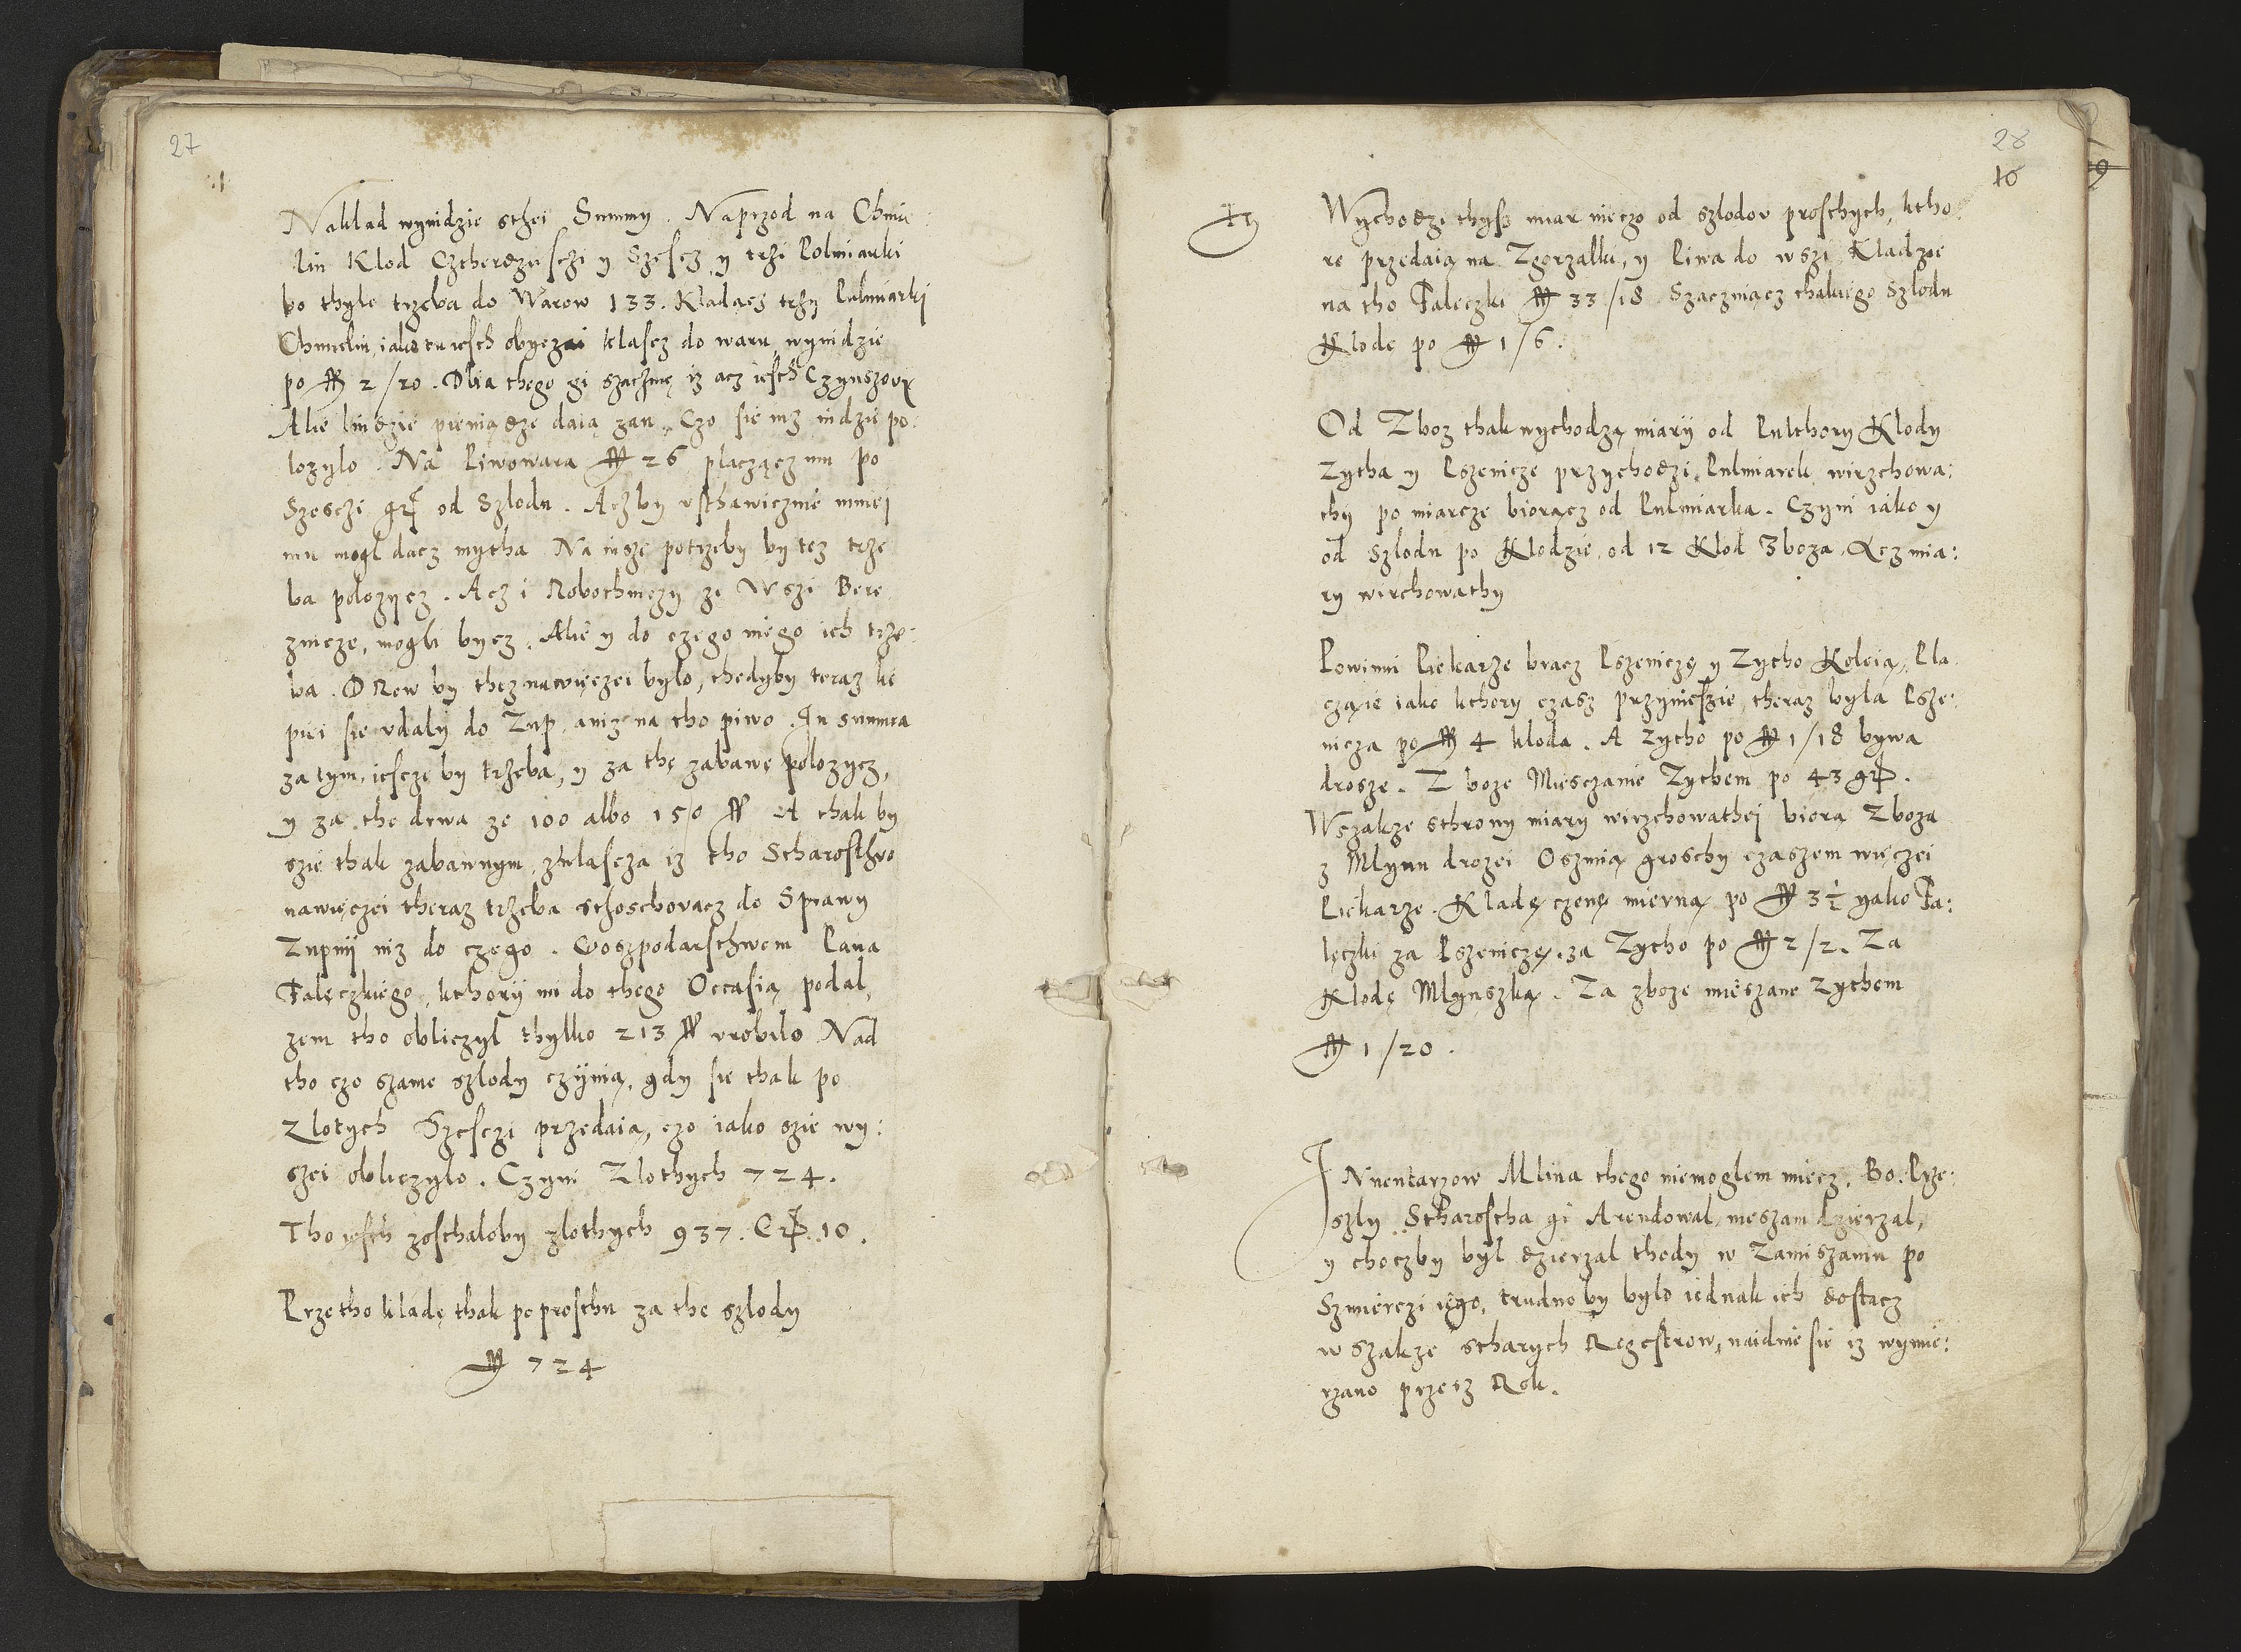 27
Naklad wynidzie sthei Summy. Naprzod na Chmie:
liu Klod Cztherdziesczi y Szescz y trzi Polmiarki
bo thyle trzeba do Warow 133. Kladącz trzy Pulmiarki
Chmieliu, iako tu iesth obyczai klascz do waru wynidzie
po ff 2/20. Dlia thego gi szaczuię iz acz iesth Czynszowy
Alie liudzie pieniądze daią zan, Czo sie niz nidzie po:
lozylo. Na Piwowara ff 26 placzącz mu po
Szesczi gr od Szlodu. Aczby vsthawicznie mniei
mu mogl dacz mytha Na insze potrzeby by tez trze
ba polozycz. Acz i Robothniczy ze Wszi Bere
znicze, mogli bycz. Alie y do czego niego ich trze:
ba. Drew by thez nawięczei bylo, thedyby teraz le
piei sie vdaly do Zup, aniz na tho piwo. In summa
za tym, iescze by trzeba, y za thę zabawę polozycz,
y za the drwa ze 100 albo 150 ff A thak by
szie thak zabawnym, zwlascza iz tho Scharosthwo
nawięczei theraz trzeba sthoschovacz do Sprawy
Zupnij niz do czego. Goszpodarsthwem Pana
Falęczkiego, kthory mi do thego Occasią podal,
zem tho obliczyl thylko 213 ff vrobilo Nad
tho czo szame szlody czynią, gdy sie thak po
Zlotych Szesczi przedaią, czo iako szie wy:
szei obliczylo. Czyni Zlothych 724.
Tho iesth zosthaloby zlothych 937. Gr. 10.
Przetho kladę thak po prosthu za the szlody
ff 724
28
16
Wychodzi thysz miar nieczo od szlodow prosthych, ktho:
re przedaią na Zgorzalki, y Piwa do wszi Kladzie
na tho Faleczki ff 33/18 Szaczuiącz thakiego Szlodu
Klode po ff 1/6.
Od Zboz thak wychodzą miary od Pulthory Klody
Zytha y Pszenicze przychodzi Pulmiarek wirzchowa:
thy po miarcze biorącz od Pulmiarka. Czyni iako y
od szlodu po Klodzie, od 12 Klod Zboza, Lecz mia:
ry wirchowathy
Powinni Piekarze bracz Pszeniczę y Zytho Koleią, Pla
cząie iako kthory czasz przyniesie, theraz byla Psze:
nicza po ff 4 kloda. A zytho po ff 1/18 bywa
drosze. Z boze Miesczanie Zythem po 43 gr.
Wszakze sthrony miary wirzchowathei biorą Zboza
z Mlynu drozei Oszmią groschy czaszem więczei
Piekarze. Kladę czenę mierną po ff 3 ½ yako Fa:
lęczki za Pszeniczę, za Zytho po ff 2/2. Za
Klodę Mlynszką. Za zboze mieszane Zythem
ff 1/20.
INuentarzow Mlina thego niemoglem miecz. Bo Prze:
szly Scharostha gi Arendowal, nieszam dzierzal,
y choczby byl dzierzal thedy w Zamiszaniu po
Szmierczi iego, trudno by bylo iednak ich dostacz
wszakze stharych Regestrow, naidnie sie iz wymie:
rzano przesz Rok.